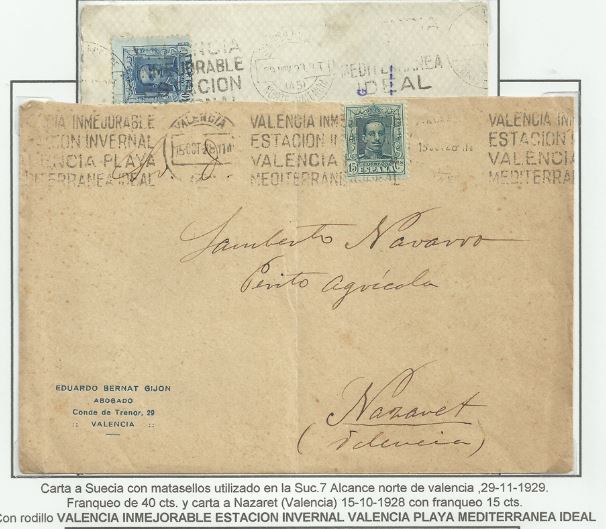 VALENCIA
INMEJORABLE
ESTACION
INVERNAL
MEDITERRANEA
IDEAL
VALENCIA INMEJORABLE
ESTACION INVERNAL
VALENCIA PLAYA
MEDITERRANEA IDEAL
VALENCIA
15 OCT 28
VALENCIA INME
ESTACION IN
VALENCIA
MEDITERRANE
15 ESPAÑA Cs
VALENCIA IN
ESTACION
VALENCIA
MEDITERRAN
Lamberto Navarro
Périto Agrícola
Nazaret
(Valencia)
EDUARDO BERNAT GIJON
ABOGADO
Conde de Trenor, 29
:: VALENCIA ::
Carta a Suecia con matasellos utilizado en la Suc.7 Alcance norte de valencia ,29-11-1929.
Franqueo de 40 cts. y carta a Nazaret (Valencia) 15-10-1928 con franqueo 15 cts.
Con rodillo VALENCIA INMEJORABLE ESTACION INVERNAL VALENCIA PLAYA MEDITERRANEA IDEAL